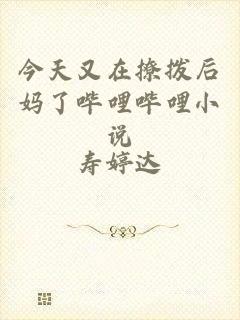 今天又在撩拨后
妈了哔哩哔哩小
说
寿婷达